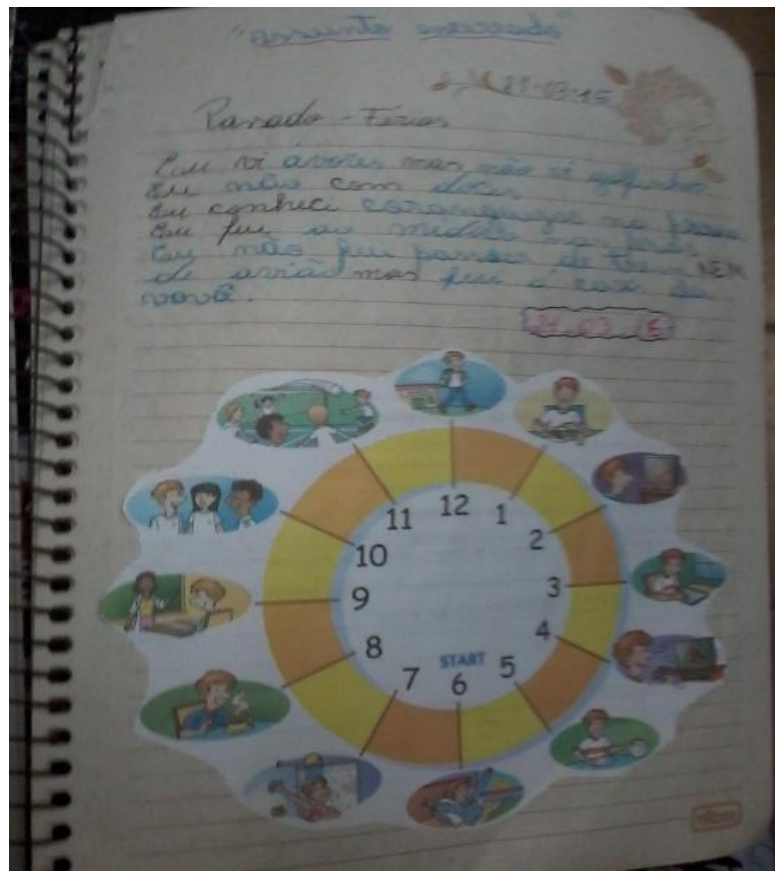 "assunto encerrado"
21-03-15
Passado - Férias
Eu vi árvores mas não vi golfinhos
Eu não com doces
Eu conheci caranguejos na praia
Eu fui ao
Eu não fui passear de trem NEM
de avião mas fui á casa da
vovó.
21.03.15
12
11
1
10
2
9
3
8
4
7
START
5
6
tilibra